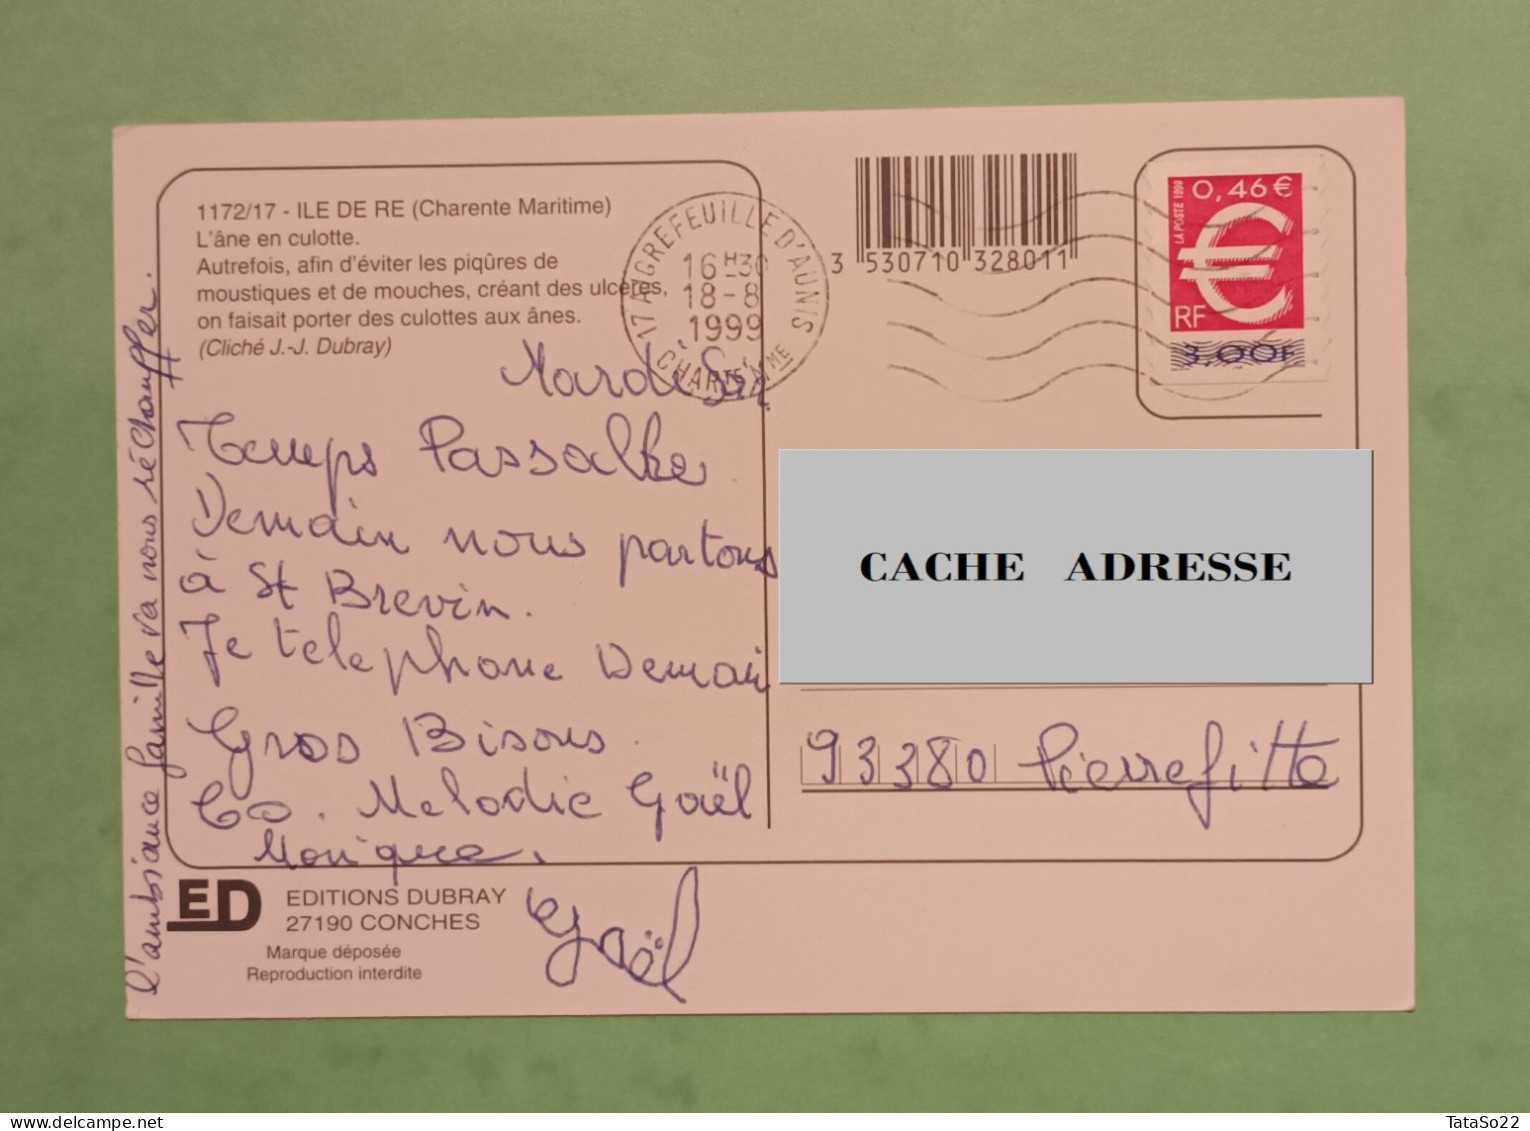 1172/17 - ILE DE RE (Charente Maritime)
L'âne en culotte.
Autrefois, afin d'éviter les piqûres de
moustiques et de mouches, créant des ulcères,
on faisait porter des culottes aux ânes.
(Cliché J.-J. Dubray)
Mardi Soir
Temps Passable
Demain nous partons
à St Brevin.
Je telephone Demain
Gros Bisous.
Co. Melodie Gaël
Monique.
Gaël
l'ambiance famille va nous réchauffer.
ED
EDITIONS DUBRAY
27190 CONCHES
Marque déposée
Reproduction interdite
17 AIGREFEUILLE D'AUNIS
16H30
18-8
1999
CHARTE MME
3 530710 328011
0,46 €
LA POSTE 1999
RF
3,00F
CACHE ADRESSE
93380 Pierrefitte
TataSo22